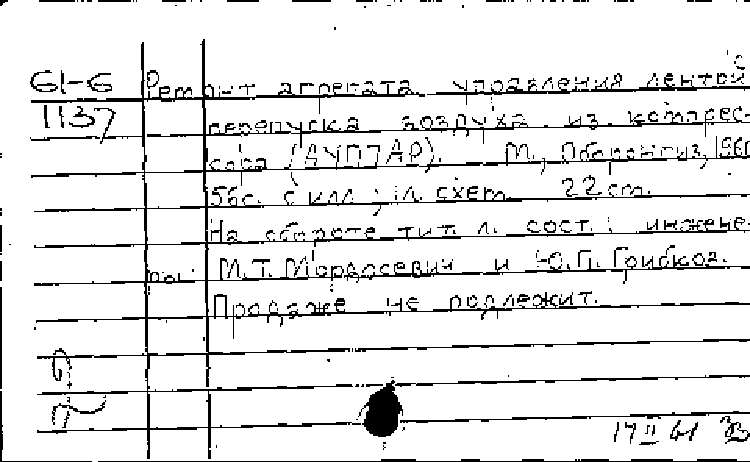 61-6
1137
Ремонт агрегата управления лентой
перепуска воздуха из компрес-
сора (АУПЛАР). М., Оборонгиз, 1960
56с. с илл; 1л. схем. 22 см.
На обороте тит. л. сост.: инжене-
ры М.Т. Мордосевич и Ю.П. Грибков.
Продаже не подлежит.
17 II 61